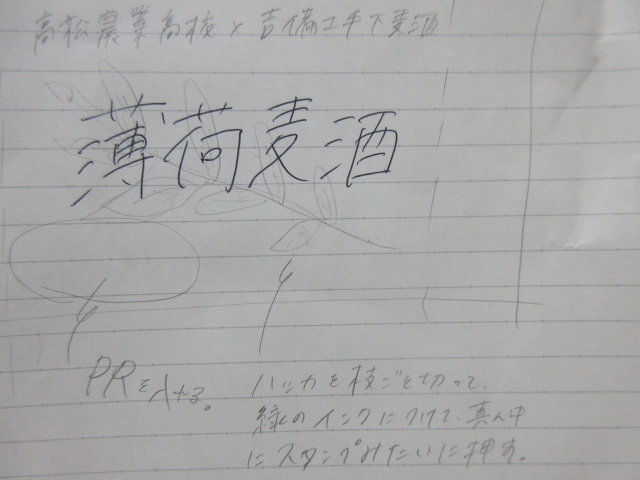 高松農業高校×吉備土手下麦酒
薄荷麦酒
PRを入れる。
ハッカを枝ごと切って、
緑のインクにつけて、真ん中
にスタンプみたいに押す。